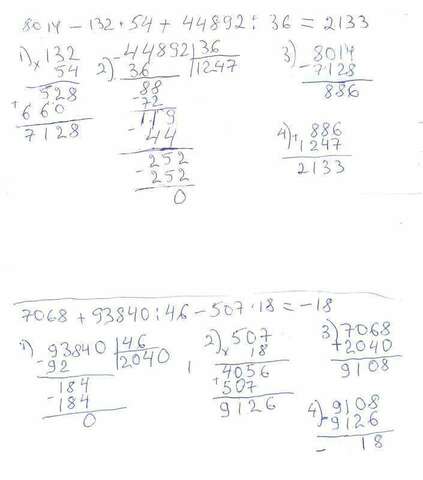 8014 - 132 · 54 + 44892 : 36 = 2133
1) × 132
54
528
+ 660
7128
2) - 44892 | 36
36 | 1247
88
- 72
- 44
252
- 252
0
3) 8014
- 7128
886
4) + 886
1247
2133
7068 + 93840 : 46 - 507 · 18 = -18
1) 93840 | 46
- 92 | 2040
184
- 184
0
2) × 507
18
4056
+ 507
9126
3) 7068
+ 2040
9108
4) - 9108
9126
- 18